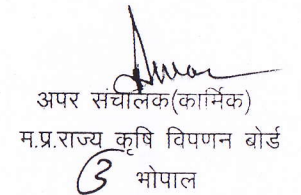 अपर संचालक(कार्मिक)
म.प्र.राज्य कृषि विपणन बोर्ड
भोपाल